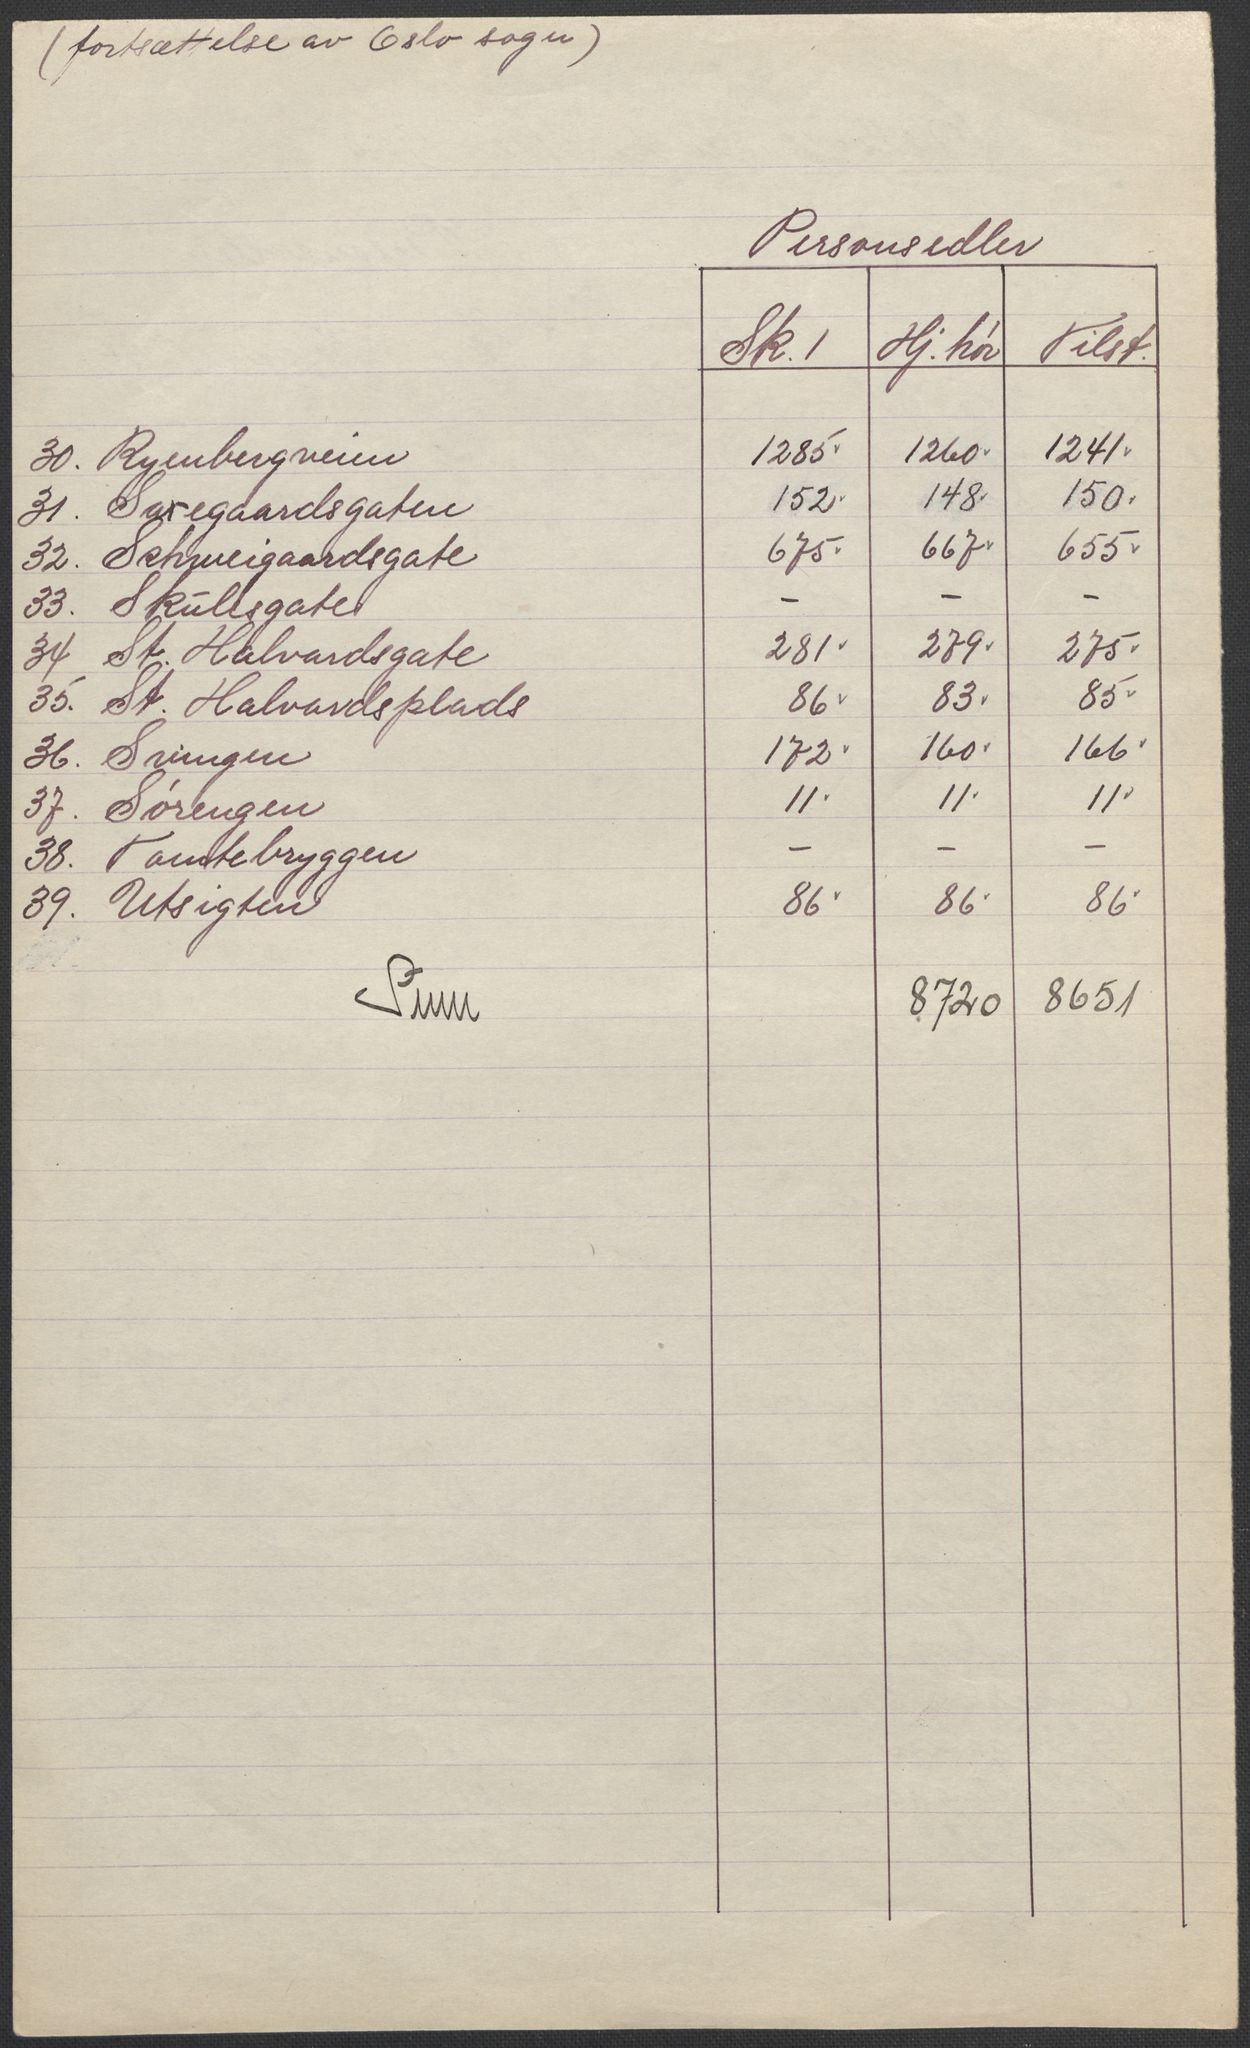 (fortsættelse av Oslo sogn)
Personsedler
Sk. 1 Hj. hör Tilst.
30. Ryenbergveien 1285 1260 1241
31. Saxegaardsgaten 152 148 150
32. Schweigaardsgate 675 667 655
33. Skūlesgate - - -
34 St. Halvardsgate 281 279 275
35. St. Halvardsplads 86 83 85
36. Svingen 172 160 166
37. Sörengen 11 11 11
38. Tomtebryggen - - -
39. Utsigten 86 86 86
Sum 8720 8651